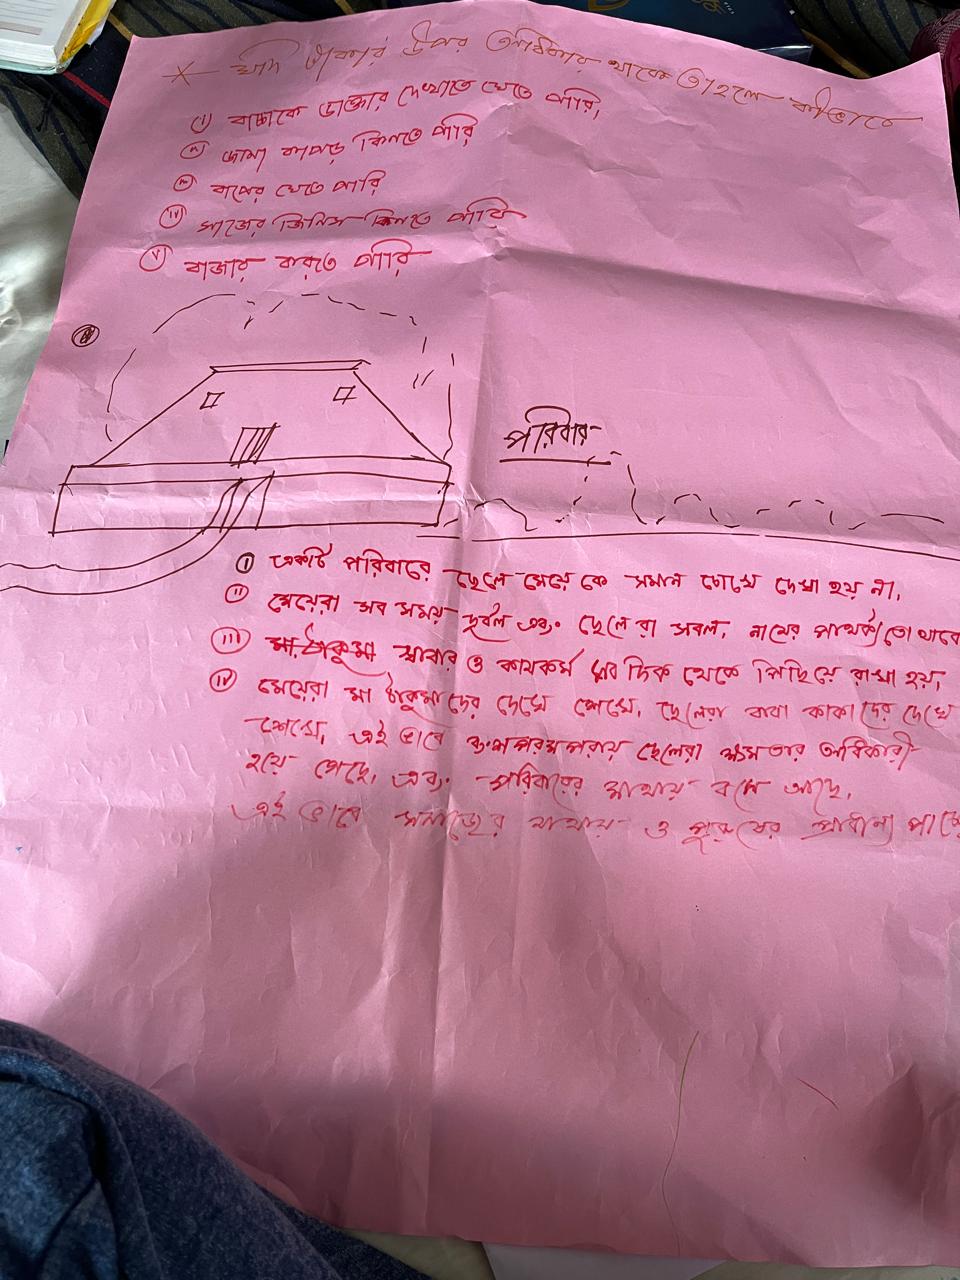 * যদি টাকার উপর অধিকার থাকে তাহলে কীভাবে
(i) বাচ্চাকে ডাক্তার দেখাতে যেতে পারি,
(ii) জামা কাপড় কিনতে পারি
(iii) বাপের যেতে পারি
(iv) সাজের জিনিস কিনতে পারি
(v) বাজার করতে পারি
পরিবার
(i) একটি পরিবারে ছেলে মেয়ে কে সমান চোখে দেখা হয় না,
(ii) মেয়েরা সব সময় দুর্বল এবং ছেলে রা সবল, পার্থক্য তো থাকে
(iii) মা ঠাকুমা খাবার ও কাযকর্ম সব দিক থেকে পিছিয়ে রাখা হয়,
(iv) মেয়েরা মা ঠাকুমাদের দেখে শেখে, ছেলেরা বাবা কাকাদের দেখে
শেখে, এই ভাবে বংশপরমপরায় ছেলেরা ক্ষমতার অধিকারী
হয়ে গেছে, এবং পরিবারের মাথায় বসে আছে,
এই ভাবে সমাজের মাথায় ও পুরুষের প্রাধান্য